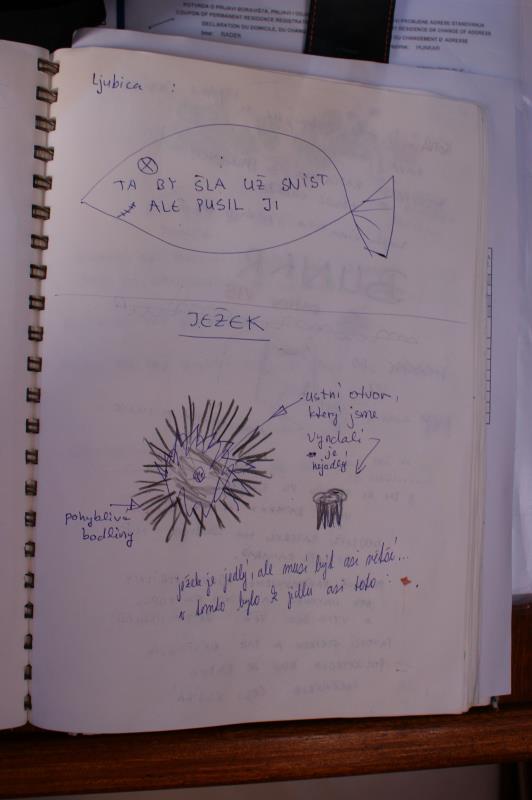 ROTUROA O PRIJAVI BORAVIŠTA, PRIJAVI I
COUPON OF PERMANENT RESIDENCE REGISTRATI
DECLARATION DU DOMICILE, DU CHANG
Ime: RADEK
PROMJENI ADRESE STANOVANJA
RESIDENCE OR CHANGE OF ADDRESS
CHANGEMENT D'ADRESSE
Ljubica :
TA BY ŠLA UŽ SNIST
ALE PUSIL JI
JEŽEK
ustni otvor,
který jsme
vyndali
je
nejedlý!
pohyblivé
bodliny
ježek je jedlý, ale musí být asi větší...
v tomto bylo k jídlu asi toto :